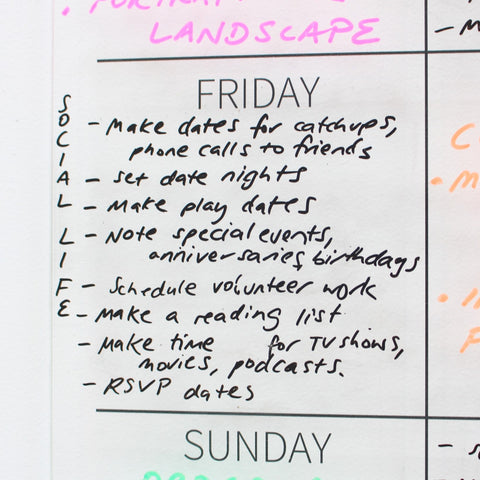 LANDSCAPE
FRIDAY
SOCIAL LIFE
- Make dates for catchups,
phone calls to friends
- set date nights
- Make play dates
- Note special events,
anniversaries, birthdays
- Schedule volunteer work
- Make a reading list
- Make time for TV shows,
movies, podcasts.
- RSVP dates
SUNDAY